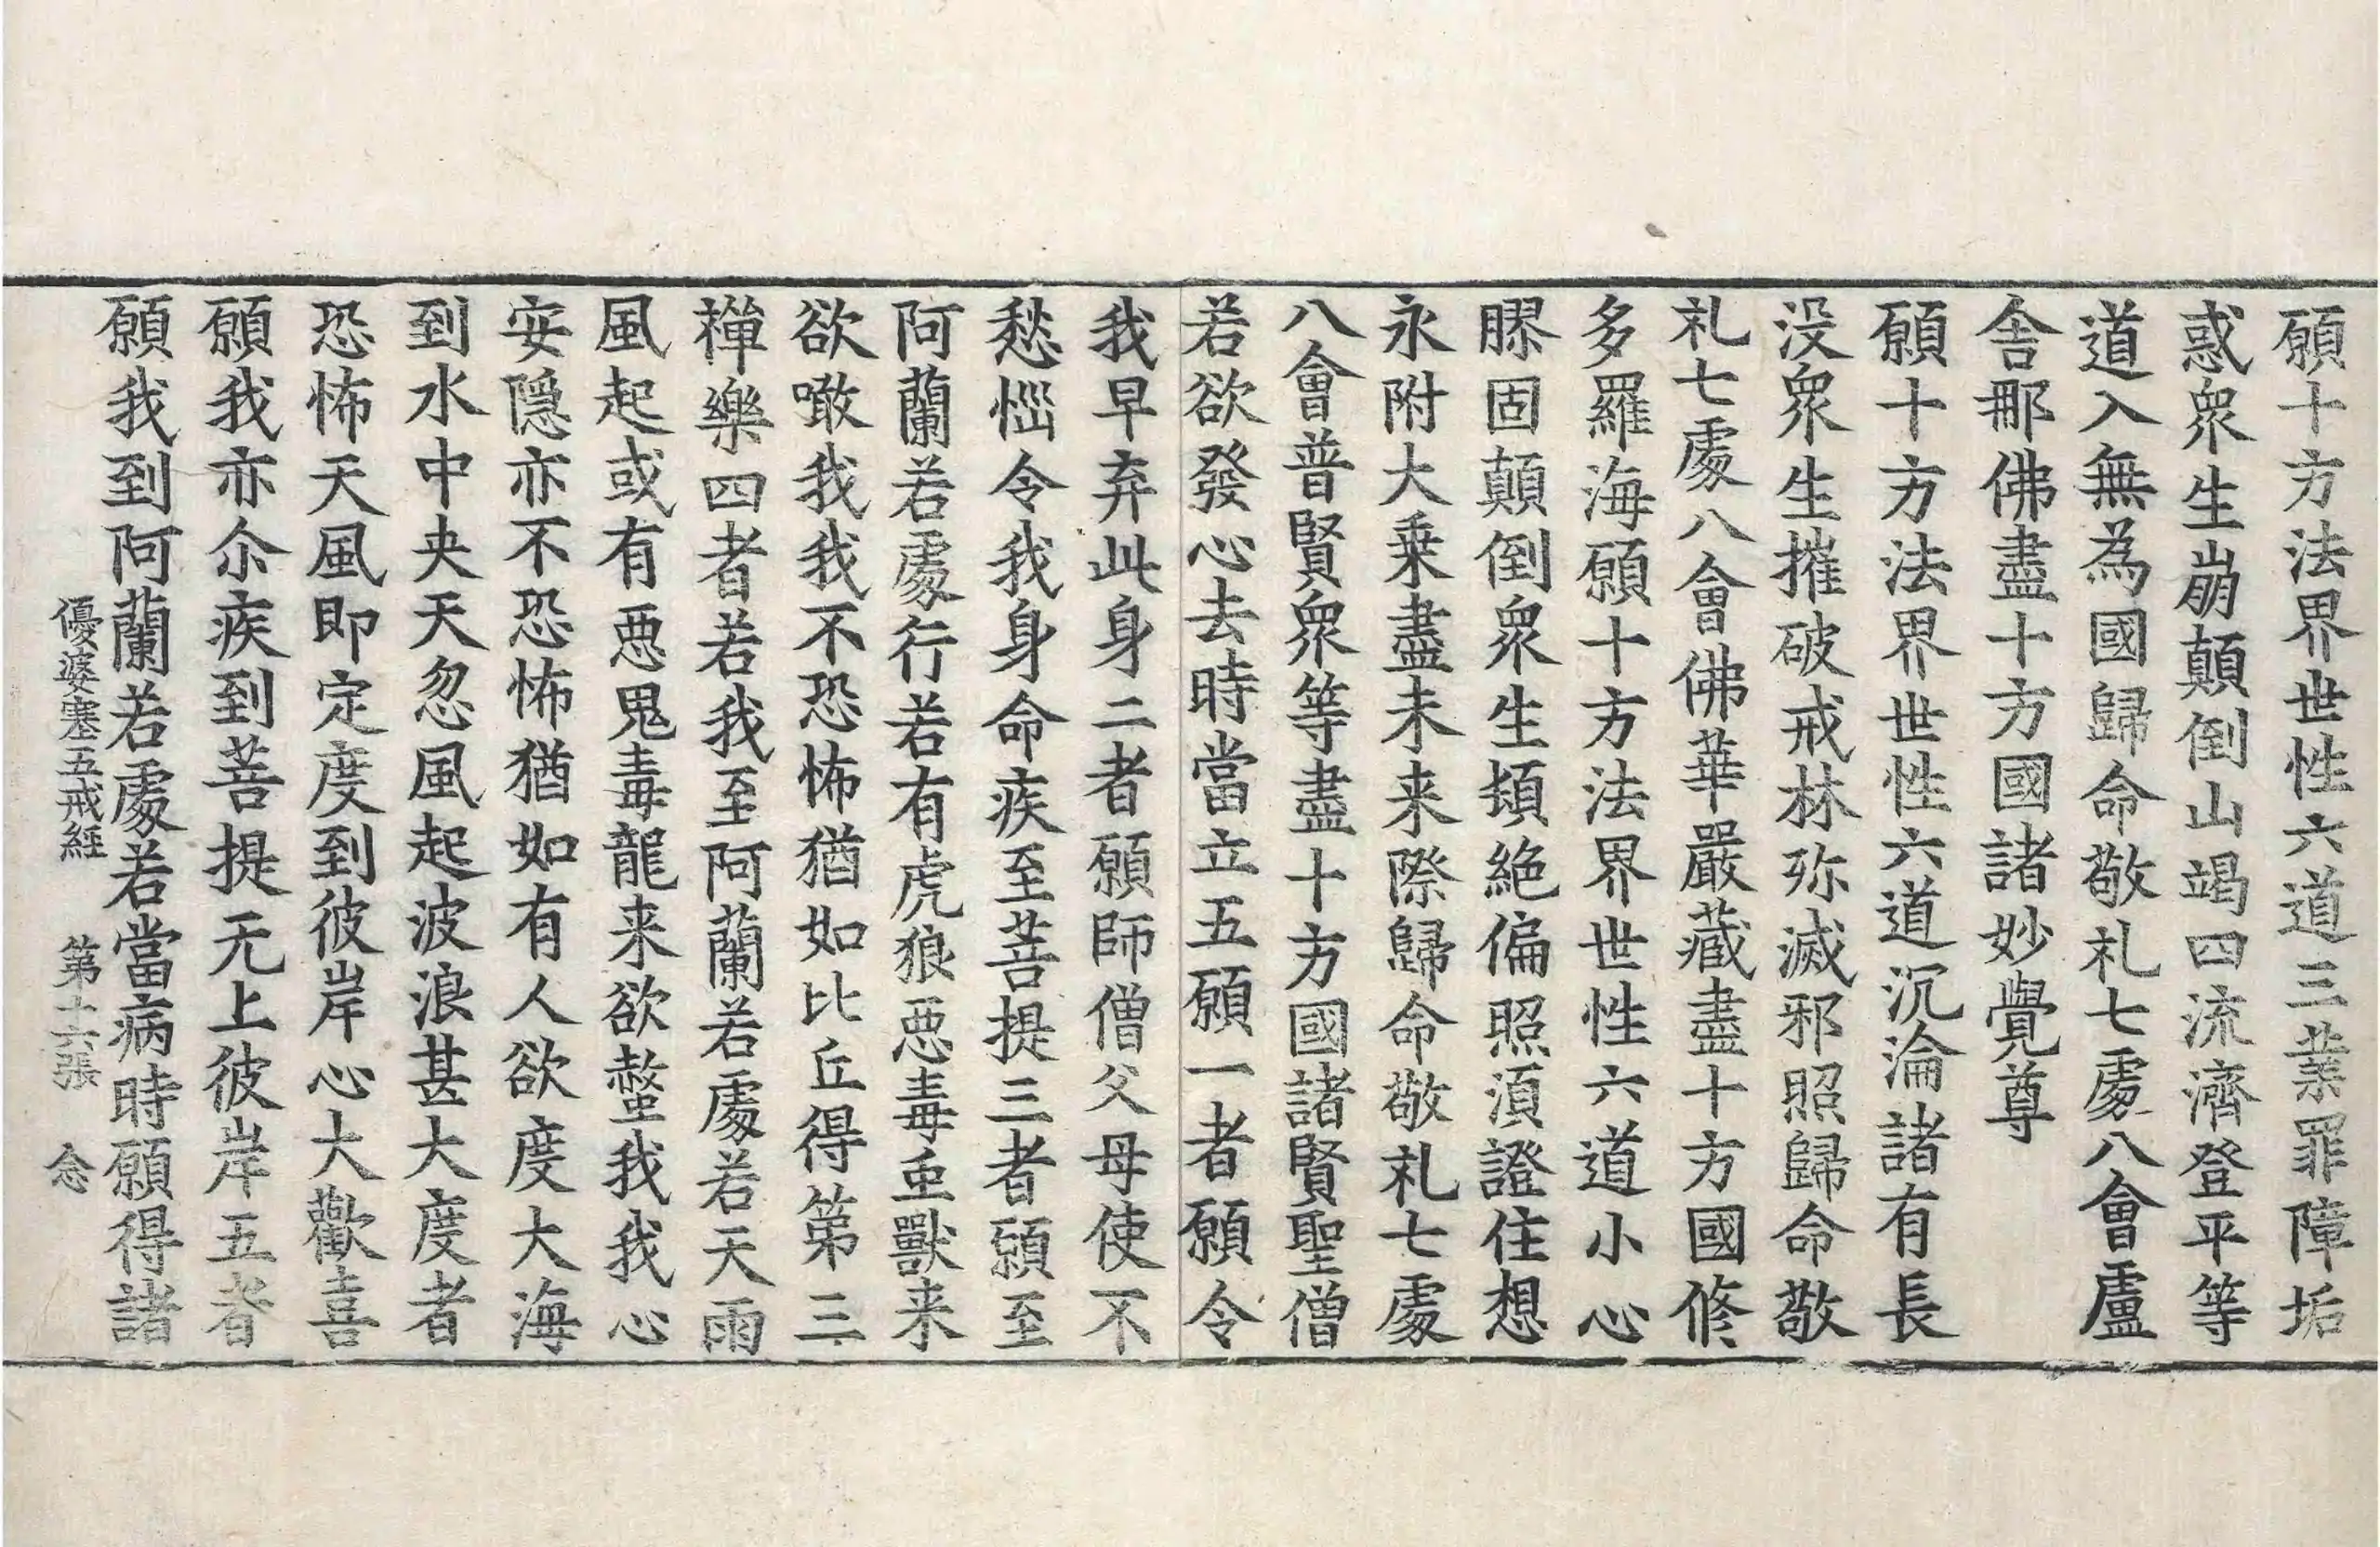 願十方法界世性六道三業罪障垢
惑衆生崩顛倒山竭四流濟登平等
道入無為國歸命敬礼七處八會盧
舍那佛盡十方國諸妙覺尊
願十方法界世性六道沉淪諸有長
没衆生摧破戒林弥滅邪照歸命敬
礼七處八會佛華嚴藏盡十方國修
多羅海願十方法界世性六道小心
膠固顛倒衆生頓絶偏照湏證住想
永附大乗盡未来際歸命敬礼七處
八會普賢衆等盡十方國諸賢聖僧
若欲發心去時當立五願一者願令
我早弃此身二者願師僧父母使不
愁惱令我身命疾至菩提三者願至
阿蘭若處行若有虎狼惡毒虫獸来
欲噉我我不恐怖猶如比丘得第三
禪樂四者若我至阿蘭若處若天雨
風起或有惡鬼毒龍来欲螫我我心
安隱亦不恐怖猶如有人欲度大海
到水中央天忽風起波浪甚大度者
恐怖天風即定度到彼岸心大歡喜
願我亦尒疾到菩提无上彼岸五者
願我到阿蘭若處若當病時願得諸
優婆塞五戒經　第十六張　念